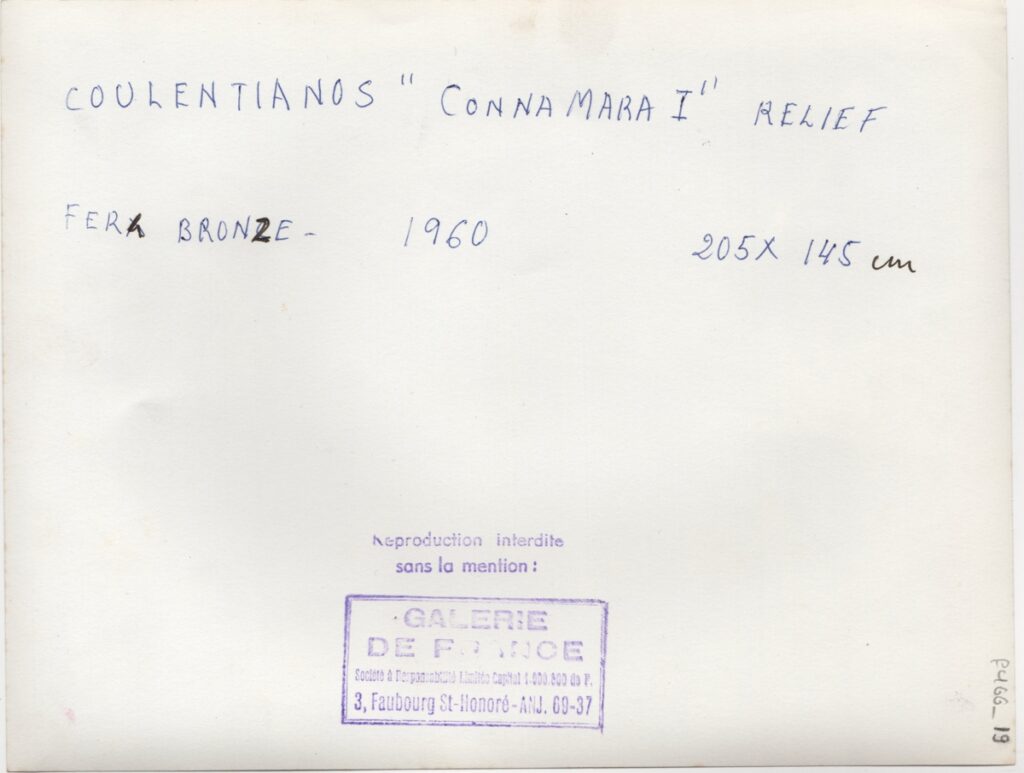 COULENTIANOS "CONNAMARA I" RELIEF
FER BRONZE - 1960 205X 145 cm
Reproduction interdite
sans la mention :
GALERIE
DE FRANCE
Société à Responsabilité Limitée Capital 1.000.000 de F.
3, Faubourg St-Honoré-ANJ. 69-37
P466_19